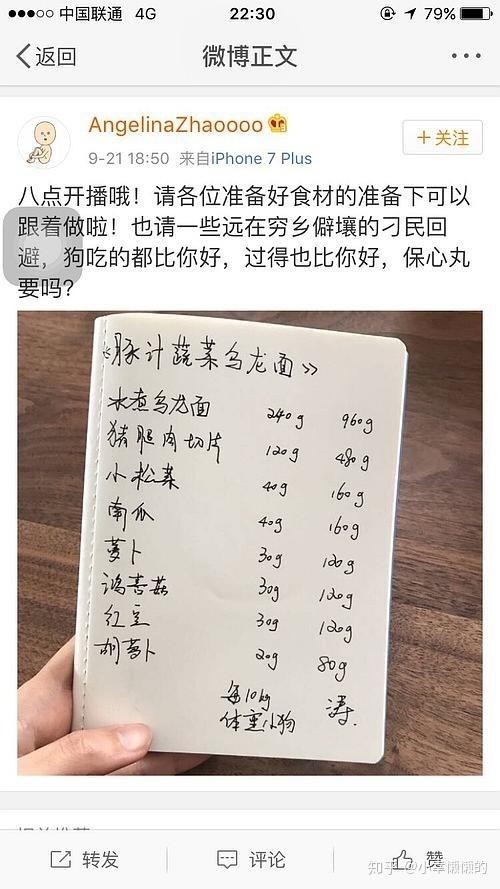 中国联通 4G 22:30 79%
返回 微博正文
AngelinaZhaoooo
+关注
9-21 18:50 来自iPhone 7 Plus
八点开播哦！请各位准备好食材的准备下可以
跟着做啦！也请一些远在穷乡僻壤的刁民回
避，狗吃的都比你好，过得也比你好，保心丸
要吗？
《豚汁蔬菜乌龙面》
水煮乌龙面 240g 960g
猪腿肉切片 120g 480g
小松菜 40g 160g
南瓜 40g 160g
萝卜 30g 120g
鸿喜菇 30g 120g
红豆 30g 120g
胡萝卜 20g 80g
每10kg
体重小狗
转发 评论 赞
知乎 @小幸懒懒的